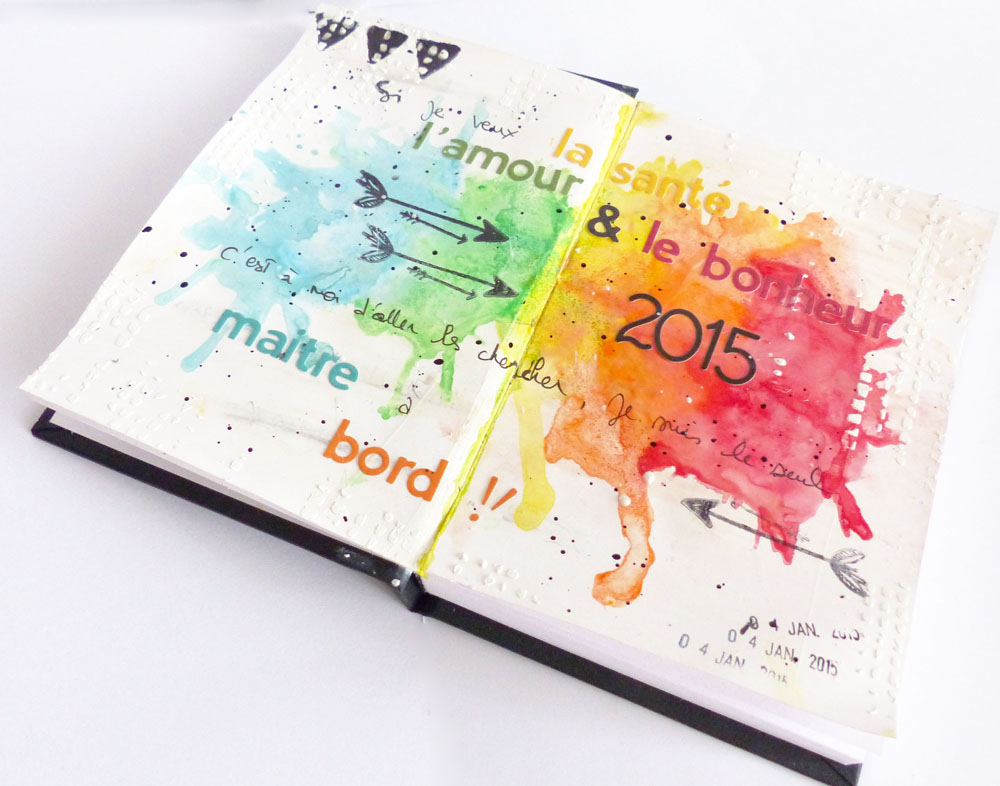 Si je veux
l'amour la santé
& le bonheur
2015
C'est à moi d'aller les chercher, je suis le seul
maitre à
bord !!
04 JAN. 2015
04 JAN. 2015
04 JAN. 2015